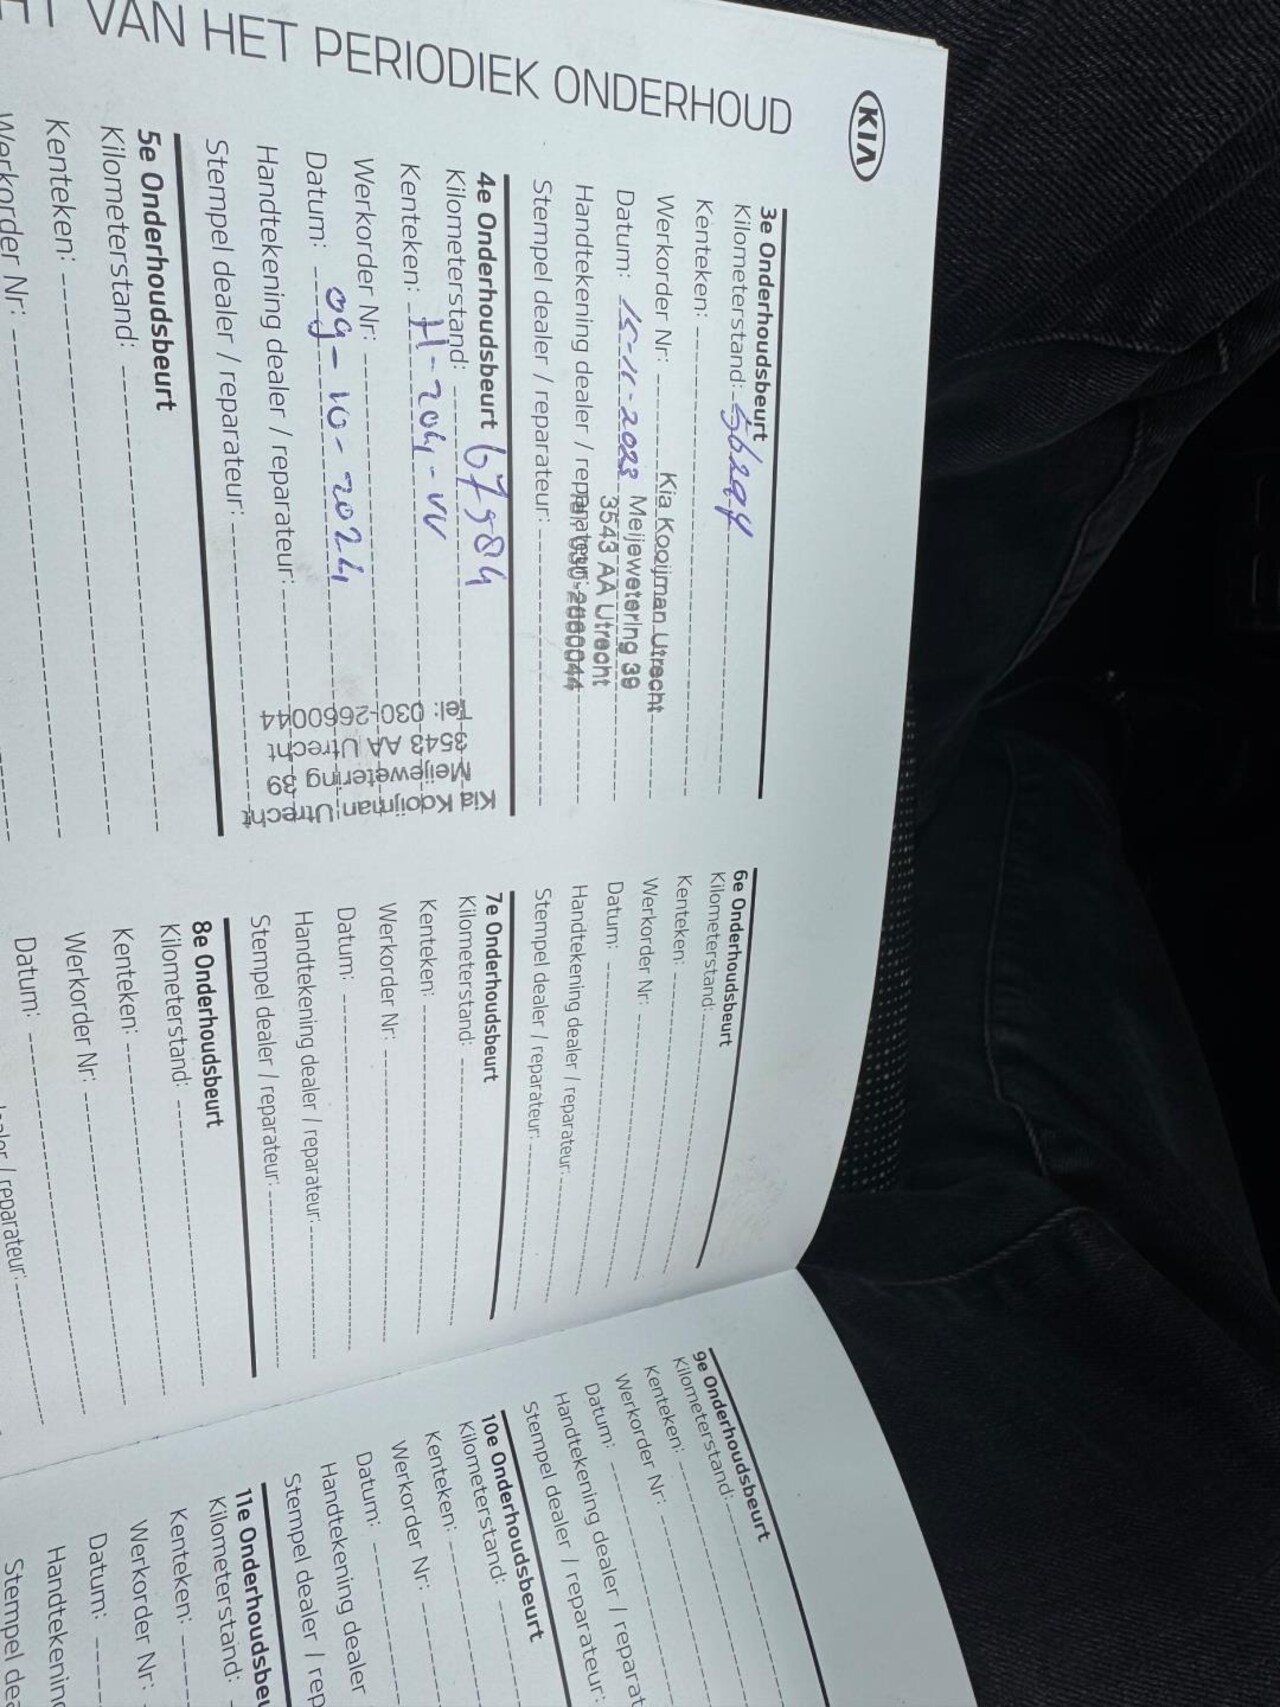 HT VAN HET PERIODIEK ONDERHOUD
KIA
3e Onderhoudsbeurt
Kilometerstand: 56294
Kenteken:
Werkorder Nr:
Datum: 15-11-2023
Handtekening dealer / reparateur:
Stempel dealer / reparateur:
Kia Kooijman Utrecht
Meijewetering 39
3543 AA Utrecht
Tel: 030-2660044
4e Onderhoudsbeurt
Kilometerstand: 67984
Kenteken: H-204-VV
Werkorder Nr:
Datum: 09-10-2024
Handtekening dealer / reparateur:
Stempel dealer / reparateur:
Kia Kooijman Utrecht
Meijewetering 39
3543 AA Utrecht
Tel: 030-2660044
5e Onderhoudsbeurt
Kilometerstand:
Kenteken:
Werkorder Nr:
6e Onderhoudsbeurt
Kilometerstand:
Kenteken:
Werkorder Nr:
Datum:
Handtekening dealer / reparateur:
Stempel dealer / reparateur:
7e Onderhoudsbeurt
Kilometerstand:
Kenteken:
Werkorder Nr:
Datum:
Handtekening dealer / reparateur:
Stempel dealer / reparateur:
8e Onderhoudsbeurt
Kilometerstand:
Kenteken:
Werkorder Nr:
Datum:
ealer / reparateur:
9e Onderhoudsbeurt
Kilometerstand:
Kenteken:
Werkorder Nr:
Datum:
Handtekening dealer / reparat
Stempel dealer / reparateur:
10e Onderhoudsbeurt
Kilometerstand:
Kenteken:
Werkorder Nr:
Datum:
Handtekening dealer
Stempel dealer / rep
11e Onderhoudsbeu
Kilometerstand:
Kenteken:
Werkorder Nr:
Datum:
Handtekening
Stempel dea